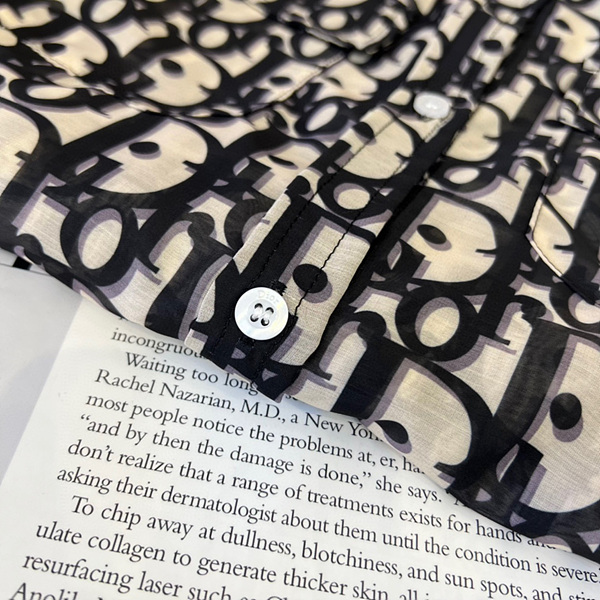 Dior
incongruou
Waiting too long
Rachel Nazarian, M.D., a New Yor
most people notice the problems at, er, ha
“and by then the damage is done,” she says.
don’t realize that a range of treatments exists for hands
asking their dermatologist about them until the condition is severe.
To chip away at dullness, blotchiness, and sun spots, and
ulate collagen to generate thicker skin,
resurfacing laser such